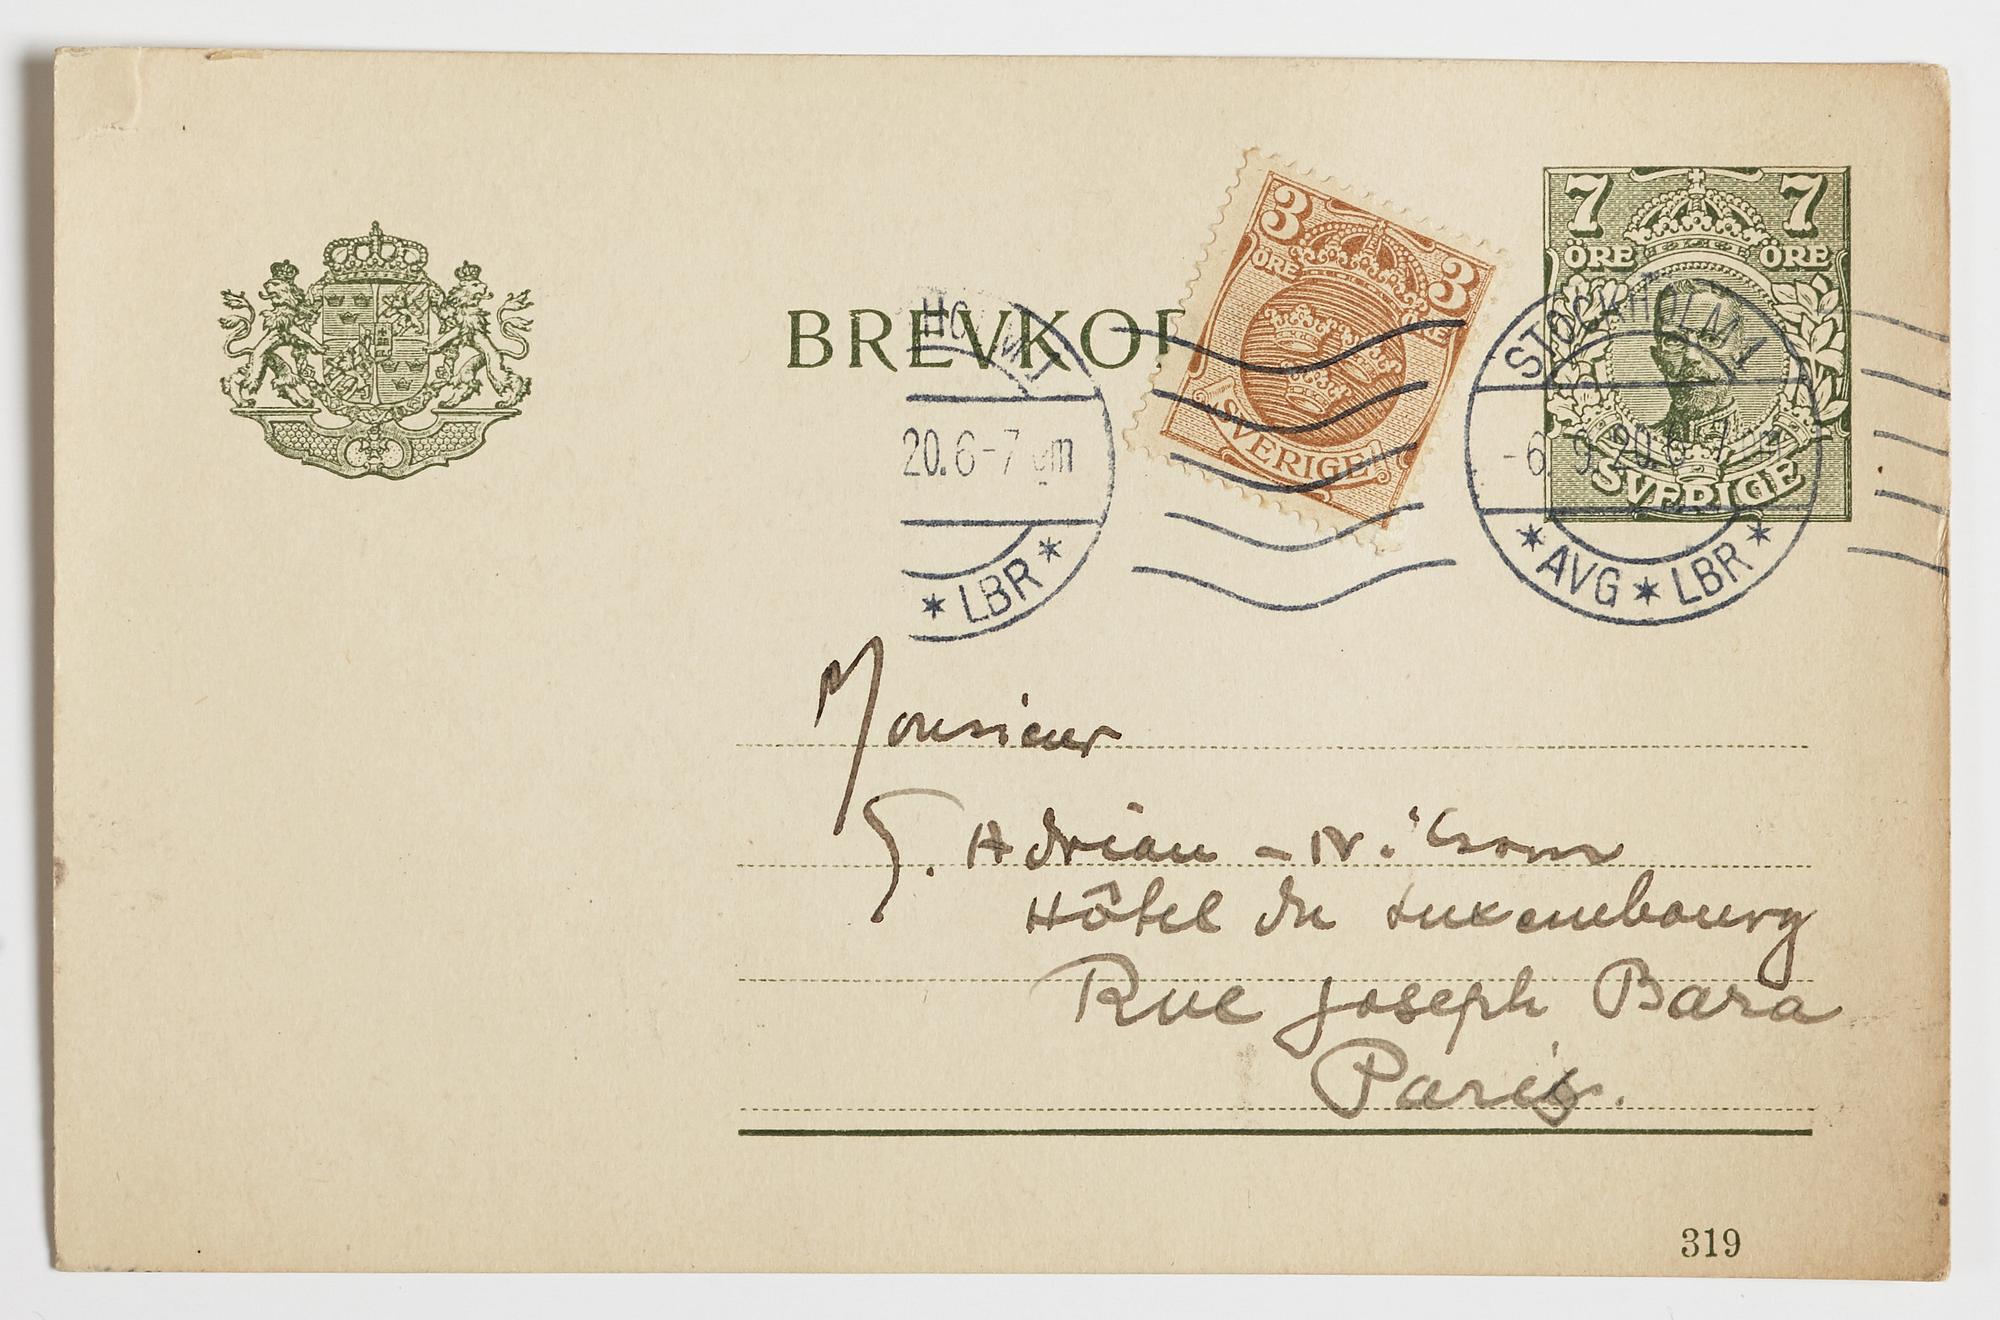 BREVKOR
3 3
ÖRE ÖRE
SVERIGE
7 7
ÖRE ÖRE
SVERIGE
20.6-7 em
* LBR *
STOCKHOLM 1
-6. 9. 20. 6-7 em
* AVG * LBR *
Monsieur
G. Adrian-Nilsson
Hôtel du Luxembourg
Rue Joseph Bara
Paris.
319